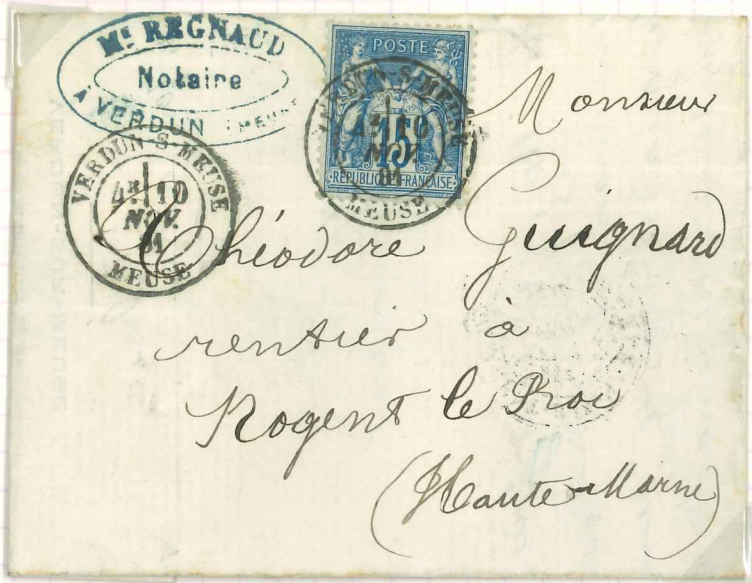 Mᵉ REGNAUD
Notaire
A VERDUN (MEUSE)
POSTE
15
RÉPUBLIQUE FRANÇAISE
VERDUN-S-MEUSE
10
NOV.
MEUSE
VERDUN-S-MEUSE
4ᴱ 10
NOV.
81
MEUSE
Monsieur
Théodore Guignard
rentier à
Nogent le Roi
(Haute-Marne)